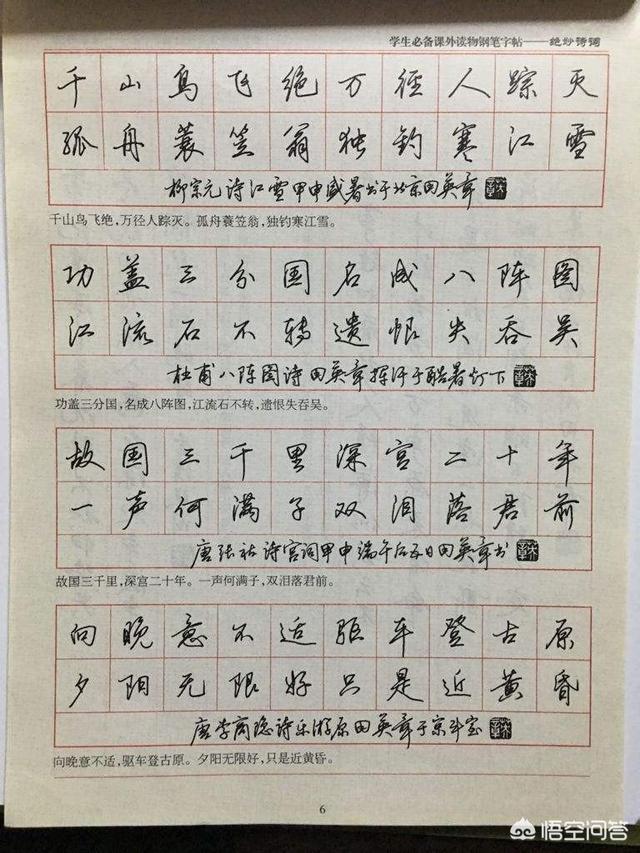 学生必备课外读物钢笔字帖——绝妙诗词
千山鸟飞绝万径人踪灭
孤舟蓑笠翁独钓寒江雪
柳宗元诗江雪甲申盛暑书于北京田英章
千山鸟飞绝，万径人踪灭。孤舟蓑笠翁，独钓寒江雪。
功盖三分国名成八阵图
江流石不转遗恨失吞吴
杜甫八阵图诗田英章挥汗于酷暑灯下
功盖三分国，名成八阵图，江流石不转，遗恨失吞吴。
故国三千里深宫二十年
一声何满子双泪落君前
唐张祜诗宫词甲申端午后五日田英章书
故国三千里，深宫二十年。一声何满子，双泪落君前。
向晚意不适驱车登古原
夕阳无限好只是近黄昏
唐李商隐诗乐游原田英章于京斗室
向晚意不适，驱车登古原。夕阳无限好，只是近黄昏。
6
悟空问答